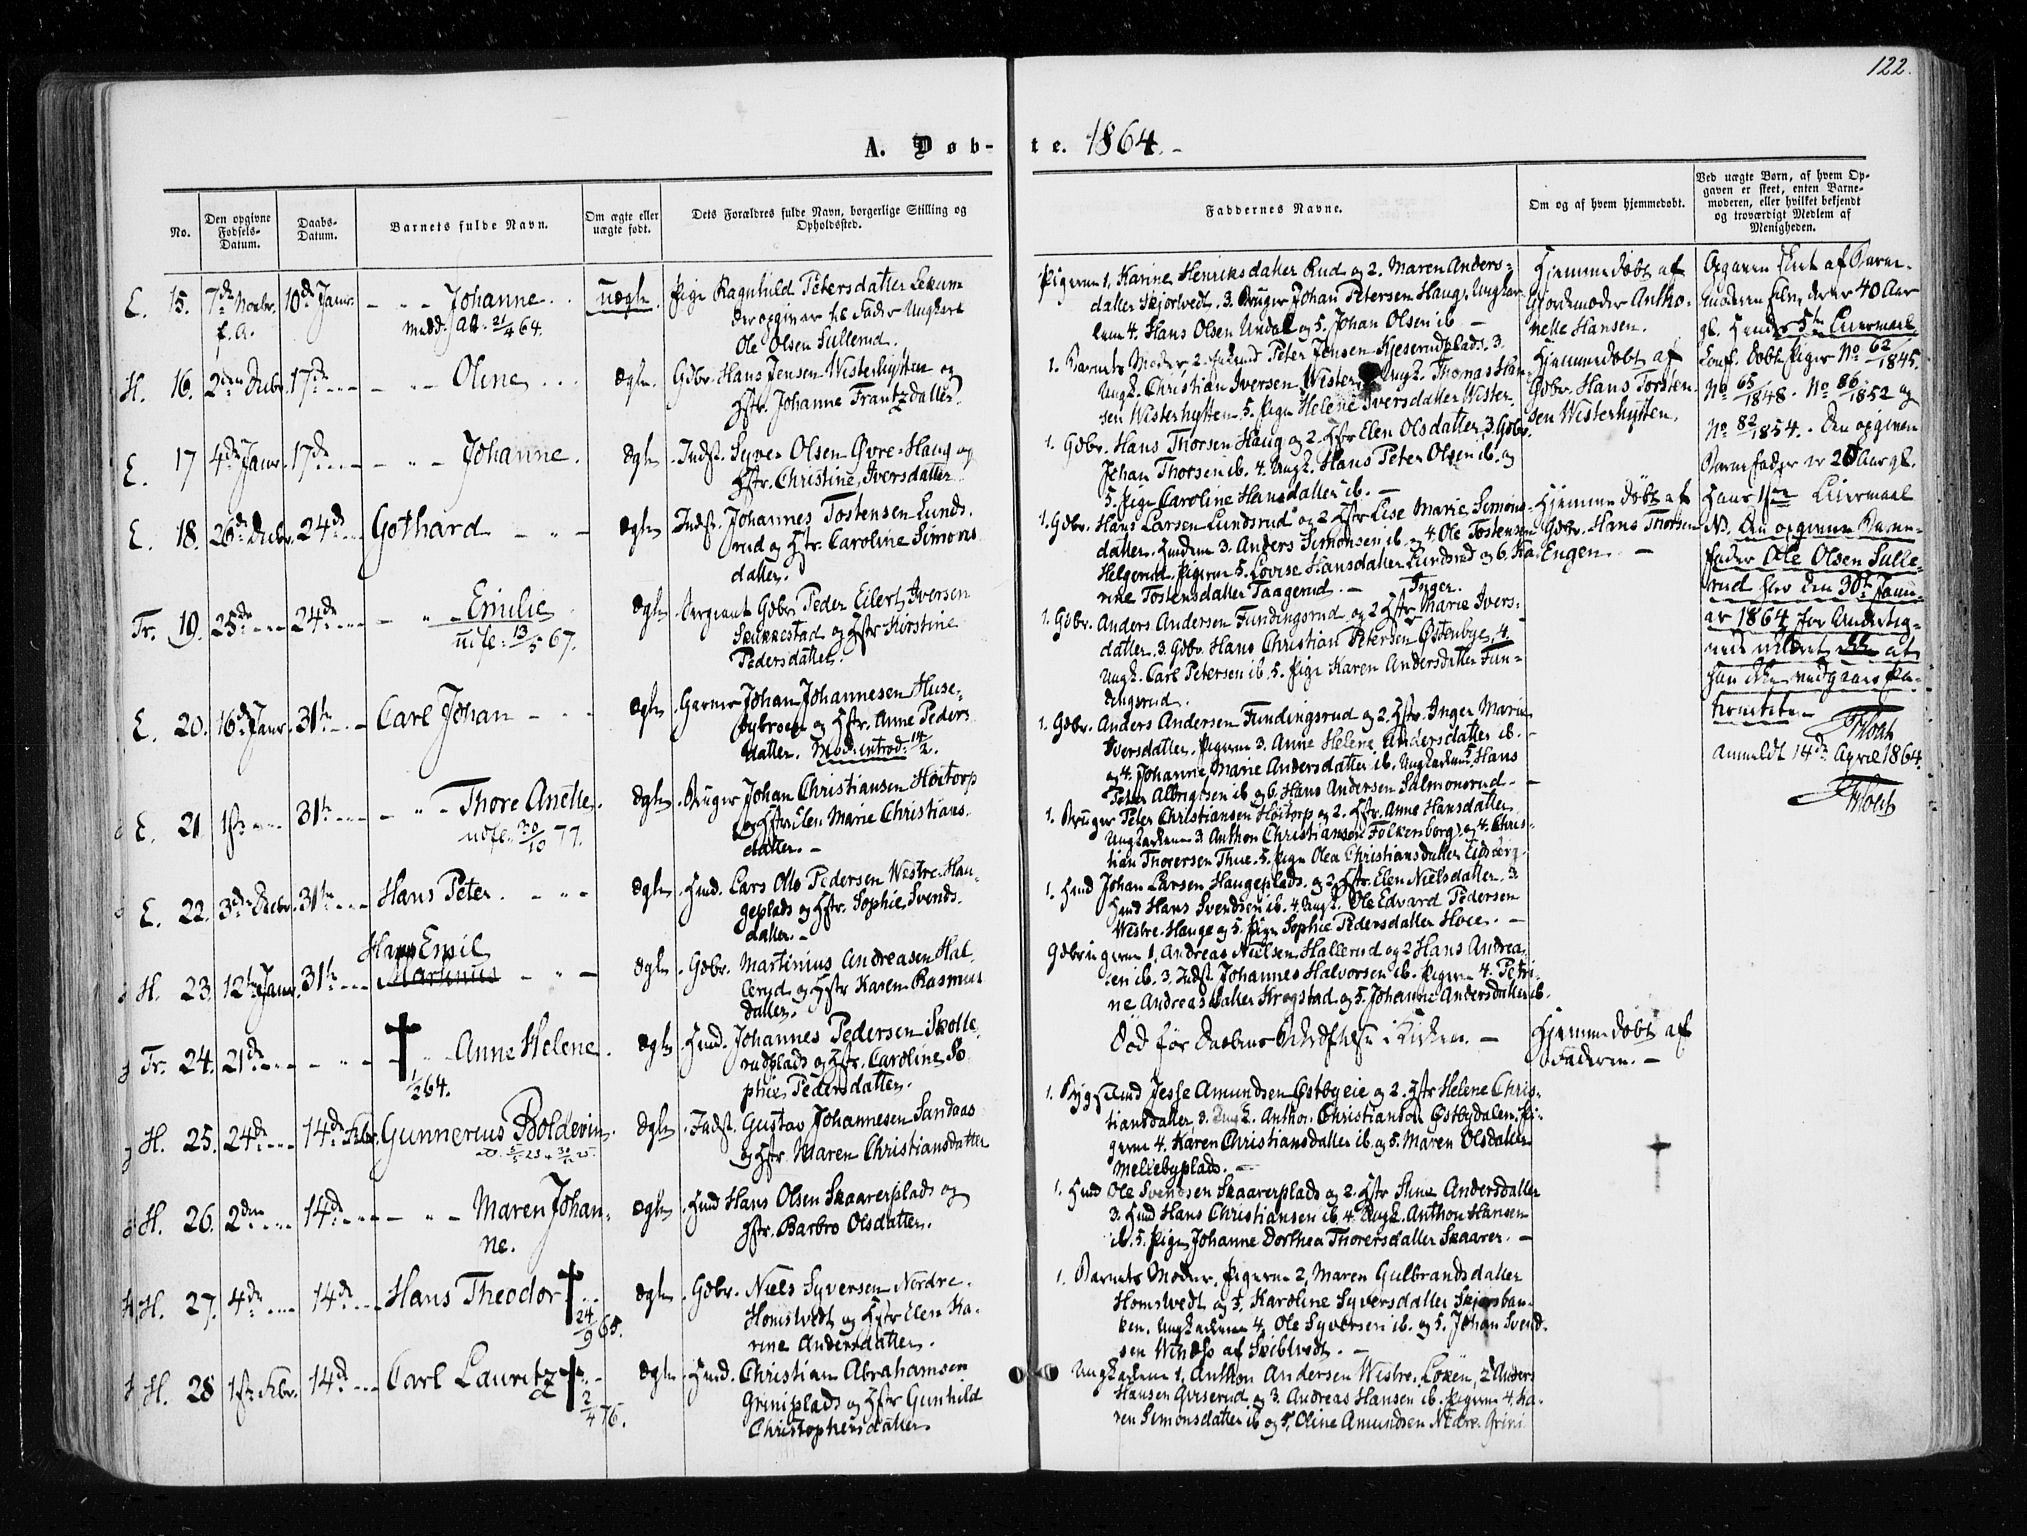 122.
A. Døb-
te. 1864.
No.
Den opgivne
Fødsels-
Datum.
Daabs-
Datum.
Barnets fulde Navn.
Om ægte eller
uægte født.
Dets Forældres fulde Navn, borgerlige Stilling og
Opholdssted.
Faddernes Navne.
Om og af hvem hjemmedøbt.
Ved uægte Børn, af hvem Op-
gaven er skeet, enten Barne-
moderen, eller hvilket bekjendt
og troværdigt Medlem af
Menigheden.
E. 15. 7de Novbr. f. A. 10de Januar. Johanne
medd. att. 21/4 64.
uægte.
Pige Ragnhild Petersdatter Lekum
der opgiver til Fader Ungkarl
Ole Olsen Sullerud.
Pigerne 1, Karine Henriksdatter Rud og 2. Maren Anders-
datter Skjørvedt. 3. Bruger Johan Petersen Haug. Ungkar-
lene 4. Hans Olsen Undal og 5. Johan Olsen ib. —
Hjemmedøbt af
Gjordemoder Antho-
nette Hansen.
Opgaven skeet af Barne-
moderen selv, der er 40 Aar
gl. Hendes 5te Leiermaal
Conf. døbte Piger No 62/1845.
No 65/1848. No 86/1852 og
No 82/1854. Den opgivne
Barnefader er 28 Aar gl.
Hans 1ste Leiermaal
NB. Den opgivne Barne-
fader Ole Olsen Sulle-
rud har den 30te Janu-
ar 1864 for Underteg-
nede meldt at
han ikke vedgaar Pa-
terniteten
Anmeldt 14de April 1864.
H. 16. 2den Decbr. 17de Oline
ægte.
Gdbr. Hans Jensen Westerhytten og
Hstr. Johanne Frantzdatter.
1. Barnets Moder, 2. Peter Jensen Kjeserudplads. 3.
Ungk. Christian Iversen Wester Ungk. Thomas Han-
sen Westerhytten. 5. Pige Helene Iversdatter Wester.
Hjemmedøbt af
Gdbr. Hans Torsten-
sen Westerhytten.
E. 17 4de Januar. 17de Johanne.
ægte
Indst. Syver Olsen Øvre-Haug og
Hstr. Christine Iversdatter
1. Gdbr. Hans Thorsen Haug og 2. Hstr Elen Olsdatter. 3. Gdbr.
Johan Thorsen ib. 4. Ungk. Hans Peter Olsen ib. og
5. Pige Caroline Hansdatter ib. —
E. 18. 26de Decbr. 24de Gothard
ægte
Indst. Johannes Tostensen Lunds-
rud og Hstr. Caroline Simons-
datter.
1. Gdbr. Hans Larsen Lundsrud og 2 Hstr Lise Marie Simons-
datter. Hmdene 3. Anders Simonsen ib. og 4. Ole Tostensen
Helgerud. Pigerne 5. Lovise Hansdatter Lundsrud og 6. Ka-
rine Tostensdatter Taagerud. — Inger.
Hjemmedøbt af
Gdbr. Hans Thorsen
Engen. —
Tr. 19. 25de 24de Emilie
udfl. 13/5 67.
ægte
Sergeant Gdbr. Peder Eilert Iversen
Skukkestad og Hstr Kirstine
Pedersdatter.
1. Gdbr. Anders Andersen Fundingsrud og 2 Hstr Marie Ivers-
datter. 3. Gdbr. Hans Christian Petersen Østenbye. 4.
Ungk. Carl Petersen ib. 5. Pige Karen Andersdatter Fun-
dingsrud.
E. 20. 16de Januar. 31te Carl Johan
ægte
Garver Johan Johannesen Huse-
bybroen og Hstr. Anne Peders-
datter. Mod. introd. 14/2.
1. Gdbr. Anders Andersen Fundingsrud og 2. Hstr. Inger Marie
Iversdatter. Pigerne 3. Anne Helene Andersdatter ib.
og 4. Johanne Marie Andersdatter ib. Ungkarlene 5. Hans
Peter Albrigtsen ib og 6. Hans Andersen Salmonsrud. —
E. 21 1ste 31te Thore Anette.
udfl. 30/10 77.
ægte
Bruger Johan Christiansen Høitorp
og Hstr. Elen Marie Christians-
datter. —
1. Bruger Peter Christiansen Høitorp og 2. Hstr. Anne Hansdatter
Ungkarlene 3 Anthon Christiansen Folkenborg og 4. Chris-
tian Thorersen Thue. 5. Pige Olea Christiansdatter Eidsberg.
E. 22. 3de Decbr. 31te Hans Peter.
ægte
Hmd. Lars Otto Pedersen Westre Hau-
geplads og Hstr. Sophie Svends-
datter. —
1. Hmd Johan Larsen Haugeplads. og 2. Hstr. Elen Nielsdatter. 3
Hmd Hans Svendsen ib. 4. Ungk. Ole Edvard Pedersen
Westre-Hauge og 5. Pige Sophie Pedersdatter Hoel. —
H. 23. 12te Januar. 31te Hans Emil
Martinus
ægte
Gdbr. Martinius Andreasen Hal-
lerud og Hstr Karen Rasmus-
datter.
Gdbrugerne 1. Andreas Nielsen Hallerud og 2 Hans Andrea-
sen ib. 3. Indst. Johannes Halvorsen ib. Pigerne 4. Petri-
ne Andreasdatter Krogstad og 5. Johanne Andersdatter ib.
Tr. 24. 21de † Anne Helene.
1/2 64.
ægte
Hmd. Johannes Pedersen Skolle-
rudplads og Hstr. Caroline So-
phie Pedersdatter.
Død før Daabens Stadfæstelse i Kirken. —
Hjemmedøbt af
Faderen. —
H. 25. 24de 14de Febr. Gunnerius Boldevin.
ægte
Indst. Gustav Johannesen Sandaas
og Hstr. Maren Christiansdatter
1. Bygselmd Jesse Amundsen Østbyeie og 2. Hstr Helene Chris-
tiansdatter, 3. Ungk. Anthon Christiansen Østbydalen. Pi-
gerne 4. Karen Christiansdatter ib. og 5. Maren Olsdatter
Meliebyplads. —
H. 26. 2den 14de Maren Johan-
ne.
ægte
Hmd Hans Olsen Skaarerplads og
Hstr. Barbro Olsdatter.
1. Hmd Ole Svendsen Skaarerplads og 2. Hstr Stine Andersdatter
3. Hmd Hans Christiansen ib. 4. Ungk. Anthon Hansen
ib. 5. Pige Johanne Dorthea Thorersdatter Skaarer. —
H. 27. 4de 14de Hans Theodor †
24/9 65.
ægte
Gdbr. Niels Syversen Nordre-
Homstvedt og Hstr Elen Ka-
rine Andersdatter.
1. Barnets Moder. Pigerne 2, Maren Gulbrandsdatter
Homstvedt og 3, Karoline Syversdatter Skjørsban-
ken. Ungkarlene 4. Ole Syversen ib. og 5. Johan Svend-
sen af Skibtvedt. —
H. 28 1ste Febr. 14de Carl Lauritz †
2/4 76.
ægte
Hmd. Christian Abrahamsen
Griniplads og Hstr Gunhild
Christophersdatter.
Ungkarlene 1. Anthon Andersen Westre Løken, 2 Anders
Hansen Gviserud og 3. Andreas Hansen ib. Pigerne 4. Ka-
ren Simonsdatter ib og 5, Oline Amundsen Nedre Grini